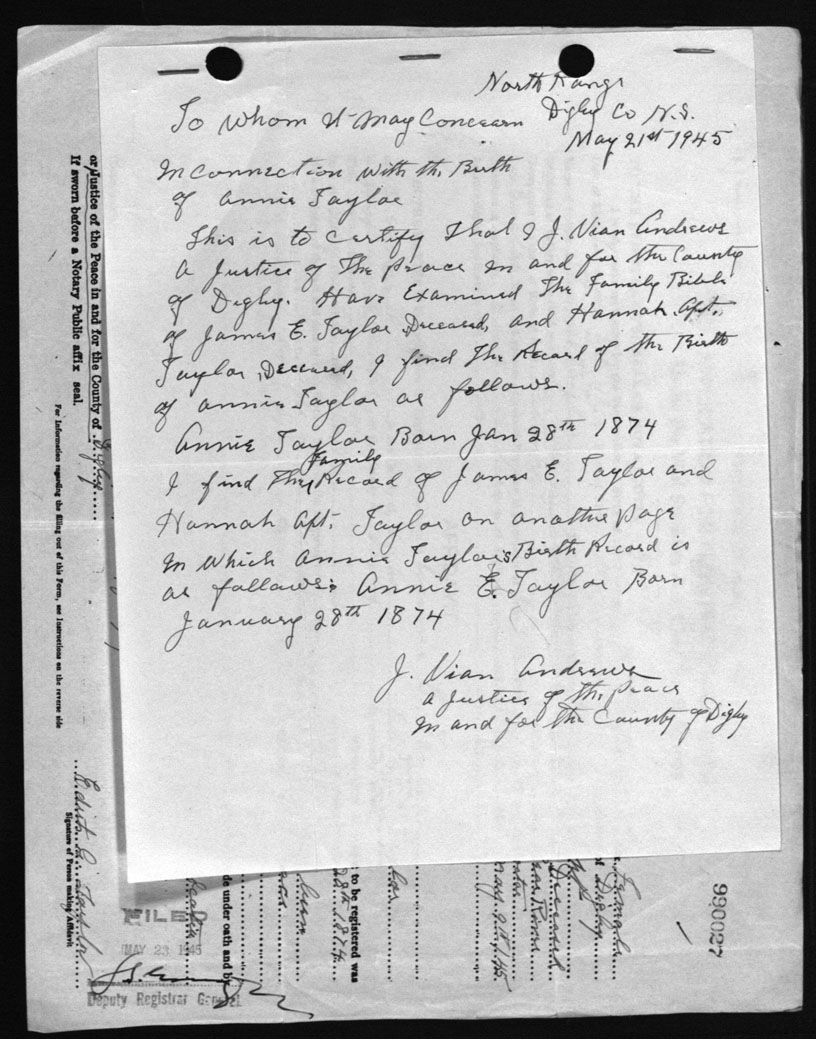 North Range
Digby Co N.S.
May 21st 1945
To Whom It May Concearn
In Connection With the Birth
of Annie Taylor
This is to Certify That I J. Vian Andrews
A Justice of The Peace In and for the County
of Digby. Have Examined The Family Bible
of James E. Taylor Deceased, and Hannah Apt.
Taylor, Deceased, I find The Record of the Birth
of Annie Taylor as follows.
Annie Taylor Born Jan 28th 1874
I find The Family Record of James E. Taylor and
Hannah Apt. Taylor on another Page
In Which Annie Taylor's Birth Record is
as follows: Annie E. Taylor Born
January 28th 1874
J. Vian Andrews
A Justice of the Peace
In and for the County of Digby
or Justice of the Peace in and for the County of Digby
If sworn before a Notary Public affix seal.
For Information regarding the filling out of this Form, see Instructions on the reverse side
Signature of Person making Affidavit
FILED
MAY 23 1945
Deputy Registrar General
de under oath and by
to be registered was
28th 1874
Digby
Deceased
May 21st, 45
990027